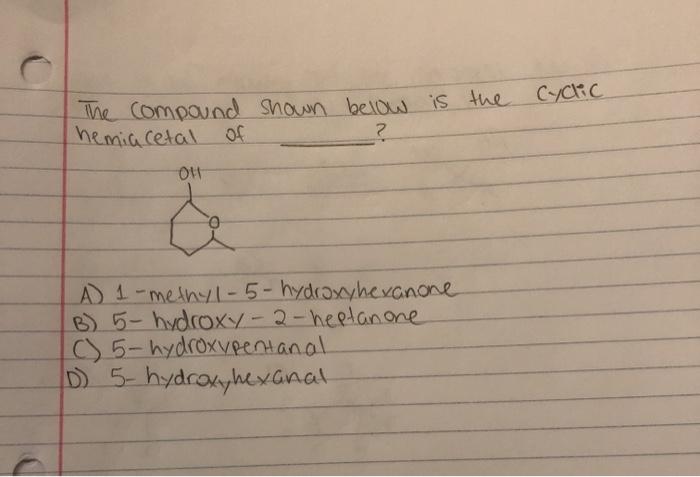 The compound shown below is the cyclic
hemiacetal of ________?
OH
O
A) 1-methyl-5-hydroxyhexanone
B) 5-hydroxy-2-heptanone
C) 5-hydroxypentanal
D) 5-hydroxyhexanal